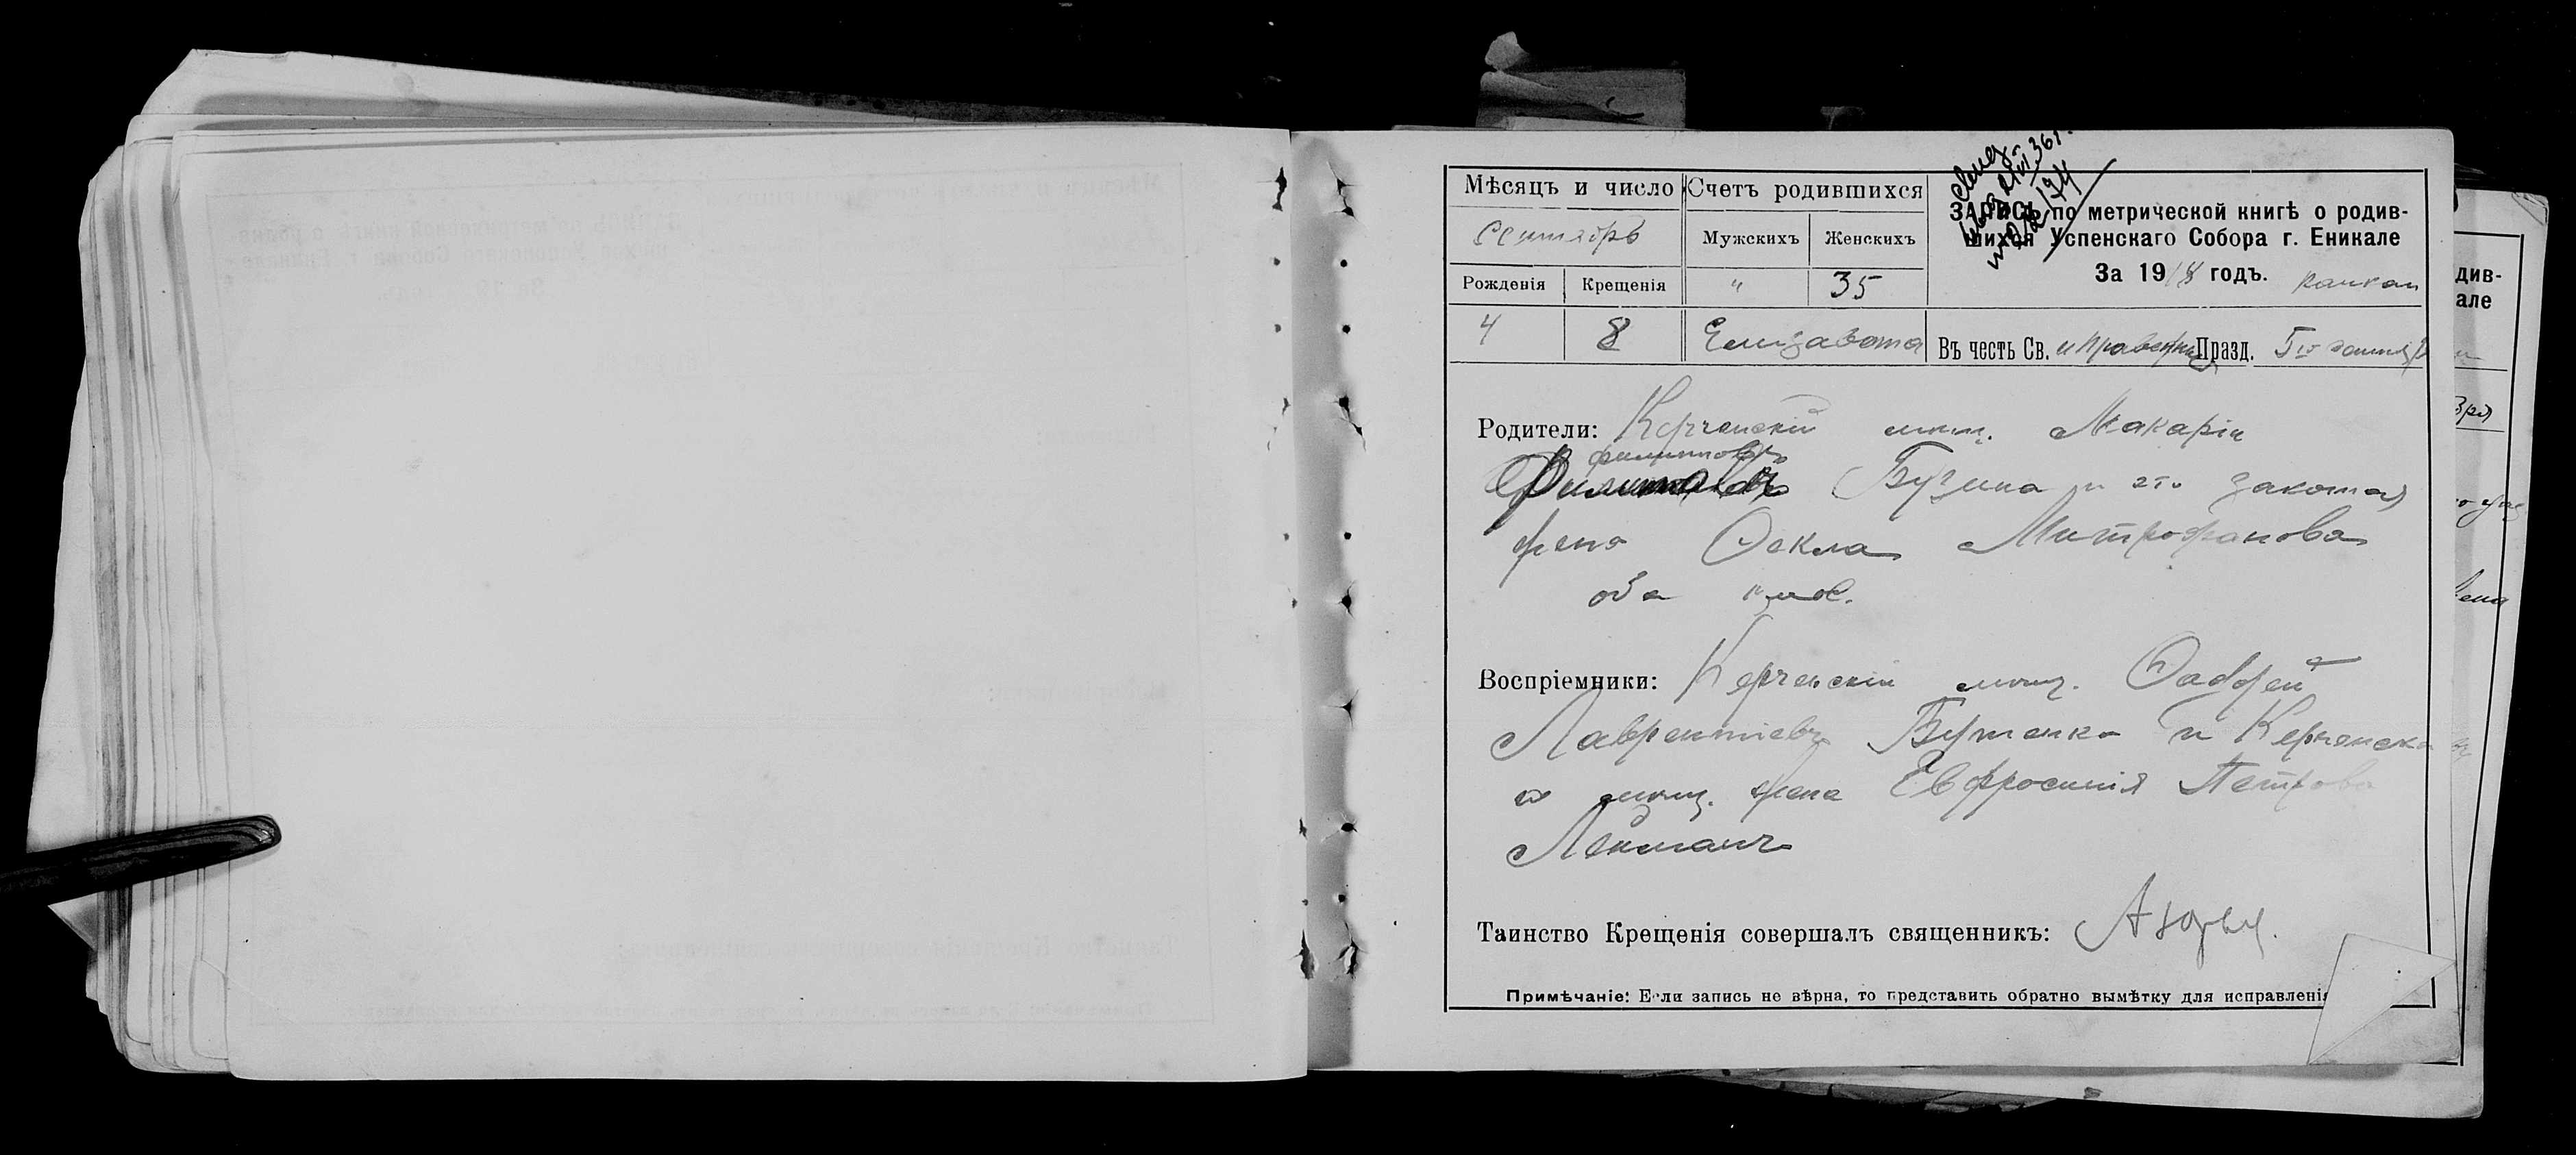 Мѣсяцъ и число
Счетъ родившихся
Сентябрь
Мужскихъ
Женскихъ
Рожденія
Крещенія
"
35
4
8
Елизавета
ЗАПИСЬ по метрической книгѣ о родив-
шихся Успенскаго Собора г. Еникале
За 1918 годъ.
Въ честь Св. и праведн Празд. 5го сентяб
Родители: Керченскій мѣщ. Макарій
Филипповъ
его законная
жена Ѳекла Митрофанова
оба
Воспріемники: Керченскій мѣщ. Ѳаддей
Лаврентіевъ Бутенко и Керченска
го мѣщ. жена Евфросинія Петрова
Таинство Крещенія совершалъ священникъ:
Примѣчаніе: Если запись не вѣрна, то представить обратно вымѣтку для исправленія
див-
але